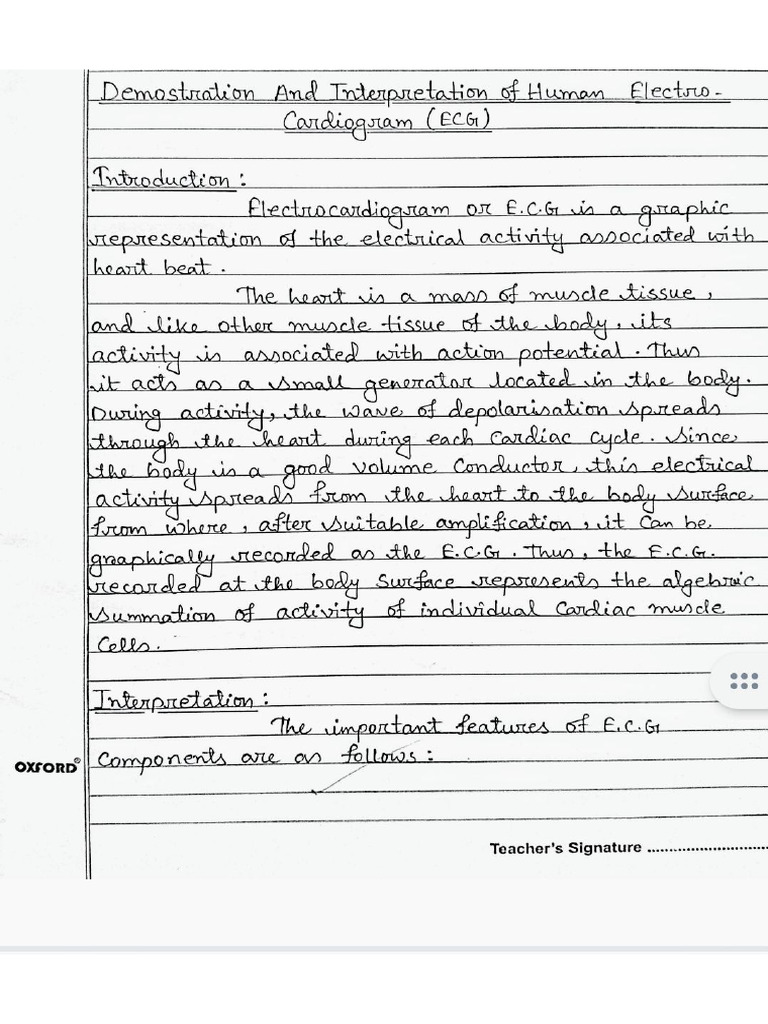 Demostration And Interpretation of Human Electro-
Cardiogram (ECG)
Introduction :
Electrocardiogram or E.C.G is a graphic
representation of the electrical activity associated with
heart beat.
The heart is a mass of muscle tissue,
and like other muscle tissue of the body, its
activity is associated with action potential. Thus
it acts as a small generator located in the body.
During activity, the wave of depolarisation spreads
through the heart during each cardiac cycle. Since
the body is a good volume conductor, this electrical
activity spreads from the heart to the body surface
from where, after suitable amplification, it can be
graphically recorded as the E.C.G. Thus, the E.C.G.
recorded at the body surface represents the algebric
summation of activity of individual cardiac muscle
cells.
Interpretation :
The important features of E.C.G
components are as follows :
OXFORD®
Teacher's Signature ............................